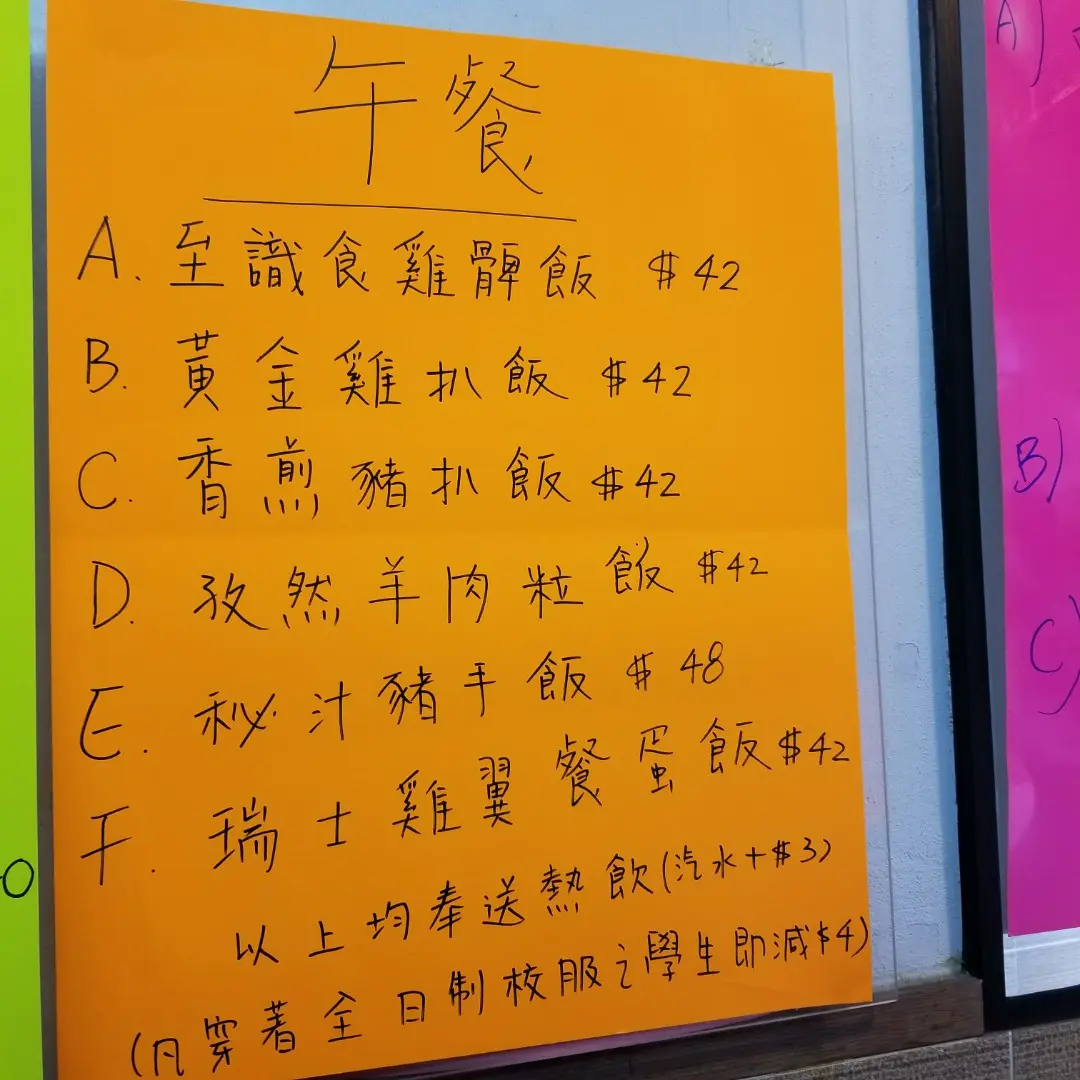 午餐
A. 至識食雞髀飯 $42
B. 黃金雞扒飯 $42
C. 香煎豬扒飯 $42
D. 孜然羊肉粒飯 $42
E. 秘汁豬手飯 $48
F. 瑞士雞翼餐蛋飯 $42
以上均奉送熱飲(汽水+$3)
(凡穿著全日制校服之學生即減$4)
A)
B)
C)